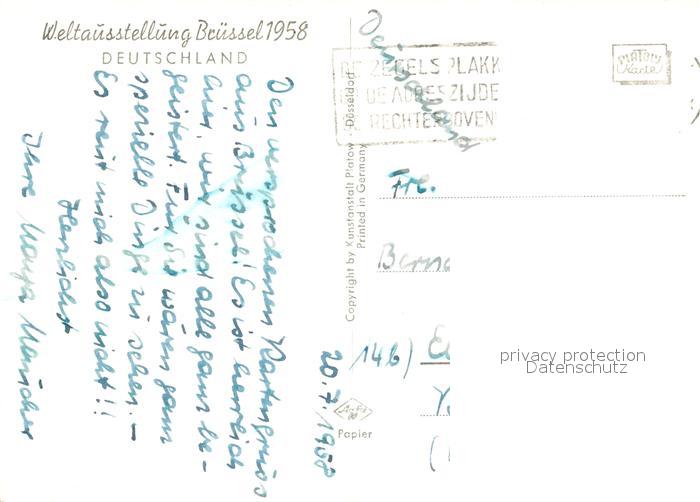 Weltausstellung Brüssel 1958
DEUTSCHLAND
20.7.1958
Den versprochenen Kartengruss
aus Brüssel! Es ist herrlich
hier, wir sind alle ganz be-
geistert. Für Sie wären ganz
spezielle Dinge zu sehen. –
Es reut mich also nicht!!
Herzlichst
Ihre
Copyright by Kunstanstalt Platow · Düsseldorf
Printed in Germany
DE ZEGELS PLAKK
DE ADRESZIJDE
RECHTERBOVEN
PLATOW
Karte
Deutschland
Frl.
Bern
14b)
Agfa
Papier
privacy protection
Datenschutz